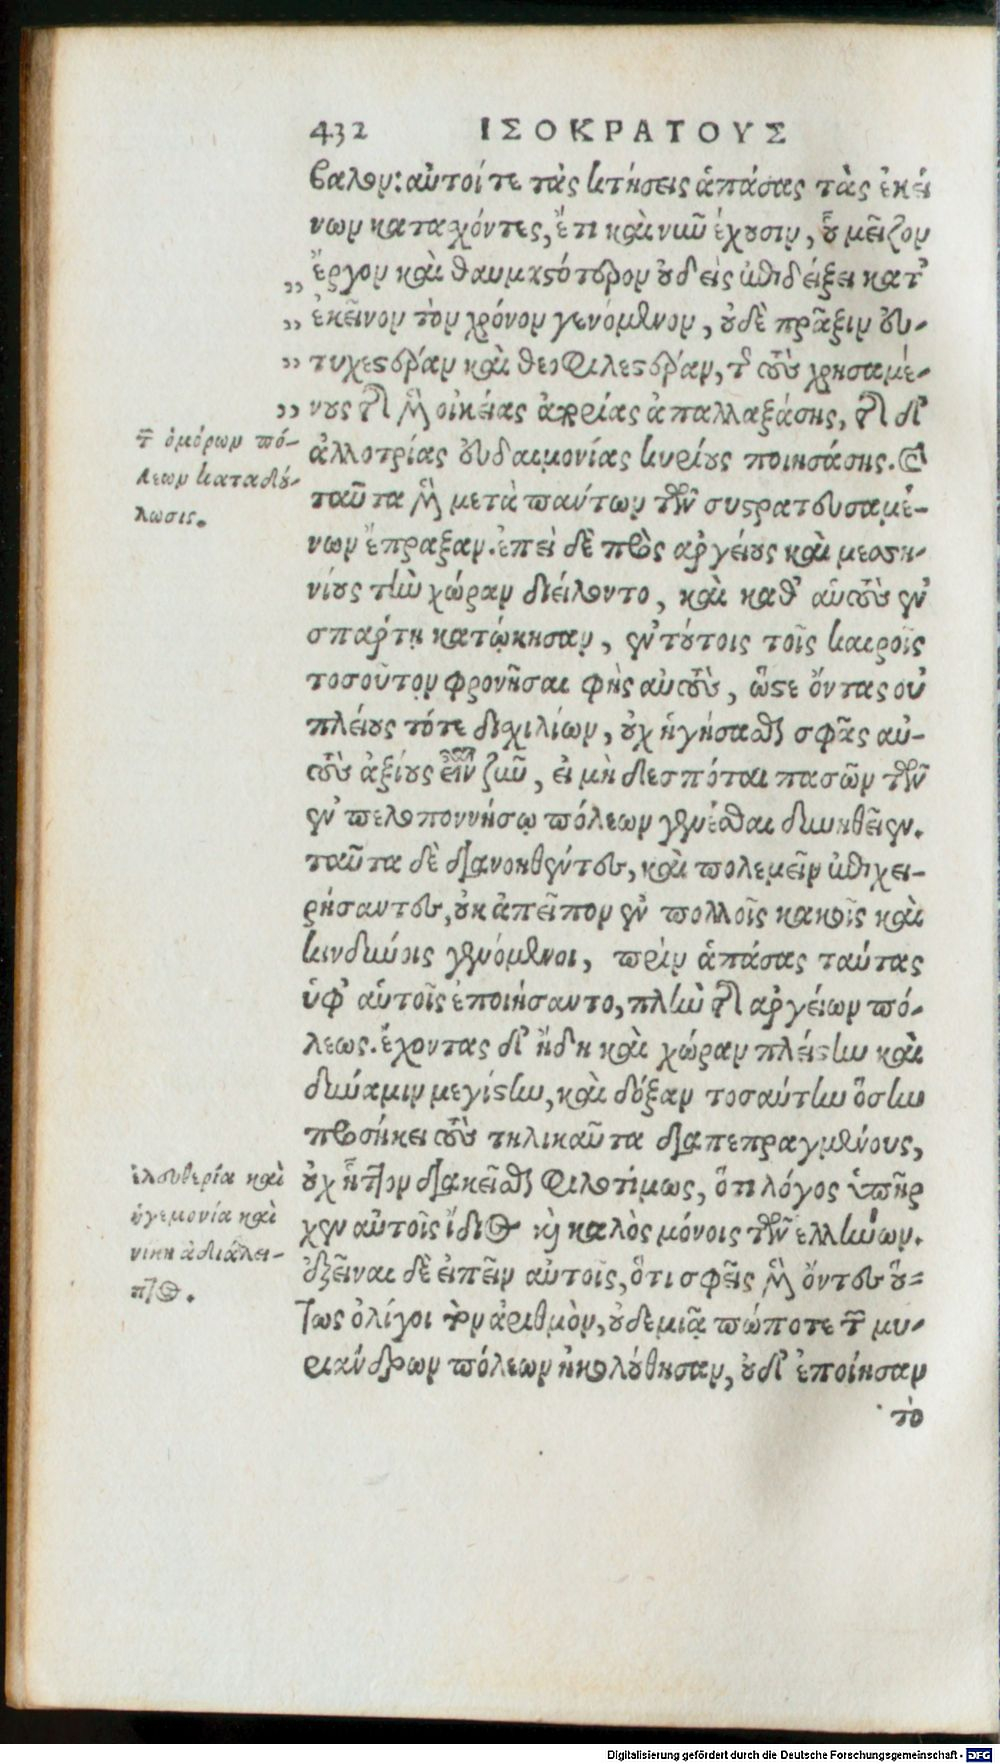 432 ΙΣΟΚΡΑΤΟΥΣ
βαλον: αὐτοί τε τὰς κτήσεις ἁπάσας τὰς ἐκεί
νων καταχόντες, ἔτι καὶ νῦν ἔχουσιν, οὗ μεῖζον
„ ἔργον καὶ θαυμαστότερον οὐδεὶς ἐπιδείξει κατ'
„ ἐκεῖνον τὸν χρόνον γενόμενον, οὐδὲ πρᾶξιν εὐ-
„ τυχεστέραν καὶ θεοφιλεστέραν, τῆς τοὺς χρησαμέ-
„ νους τῆς μὲν οἰκείας ἀπορίας ἀπαλλαξάσης, τῆς δ'
ἀλλοτρίας εὐδαιμονίας κυρίους ποιησάσης. καὶ
ταῦτα μὲν μετὰ πάντων τῶν συστρατευσαμέ-
νων ἔπραξαν. ἐπεὶ δὲ πρὸς ἀργείους καὶ μεσση-
νίους τὴν χώραν διείλοντο, καὶ καθ' αὑτοὺς ἐν
σπάρτῃ κατῴκησαν, ἐν τούτοις τοῖς καιροῖς
τοσοῦτον φρονῆσαι φὴς αὐτοὺς, ὥστε ὄντας οὐ
πλείους τότε διχιλίων, οὐχ ἡγήσασθαι σφᾶς αὐ-
τοὺς ἀξίους εἶναι ζῆν, εἰ μὴ δεσπόται πασῶν τῶν
ἐν πελοποννήσῳ πόλεων γενέσθαι δυνηθεῖεν.
ταῦτα δὲ διανοηθέντες, καὶ πολεμεῖν ἐπιχει-
ρήσαντες, οὐκ ἀπεῖπον ἐν πολλοῖς κακοῖς καὶ
κινδύνοις γενόμενοι, πρὶν ἁπάσας ταύτας
ὑφ' αὑτοῖς ἐποιήσαντο, πλὴν τῆς ἀργείων πό-
λεως. ἔχοντας δ' ἤδη καὶ χώραν πλείστην καὶ
δύναμιν μεγίστην, καὶ δόξαν τοσαύτην ὅσην
προσήκει τοὺς τηλικαῦτα διαπεπραγμένους,
οὐχ ἧττον διακεῖσθαι φιλοτίμως, ὅτι λόγος ὑπῆρ
χεν αὐτοῖς ἴδιος καὶ καλὸς μόνοις τῶν ἑλλήνων.
ἐξεῖναι δὲ εἰπεῖν αὐτοῖς, ὅτι σφεῖς μὲν ὄντες οὕ-
τως ὀλίγοι τὸν ἀριθμὸν, οὐδεμιᾷ πώποτε τῶν μυ-
ριάνδρων πόλεων ἠκολούθησαν, οὐδ' ἐποίησαν
τὸ
τῶν ὁμόρων πό-
λεων καταδού-
λωσις.
ἐλευθερία καὶ
ἡγεμονία καὶ
νίκη ἀδιάλει-
πτος.
Digitalisierung gefördert durch die Deutsche Forschungsgemeinschaft - DFG